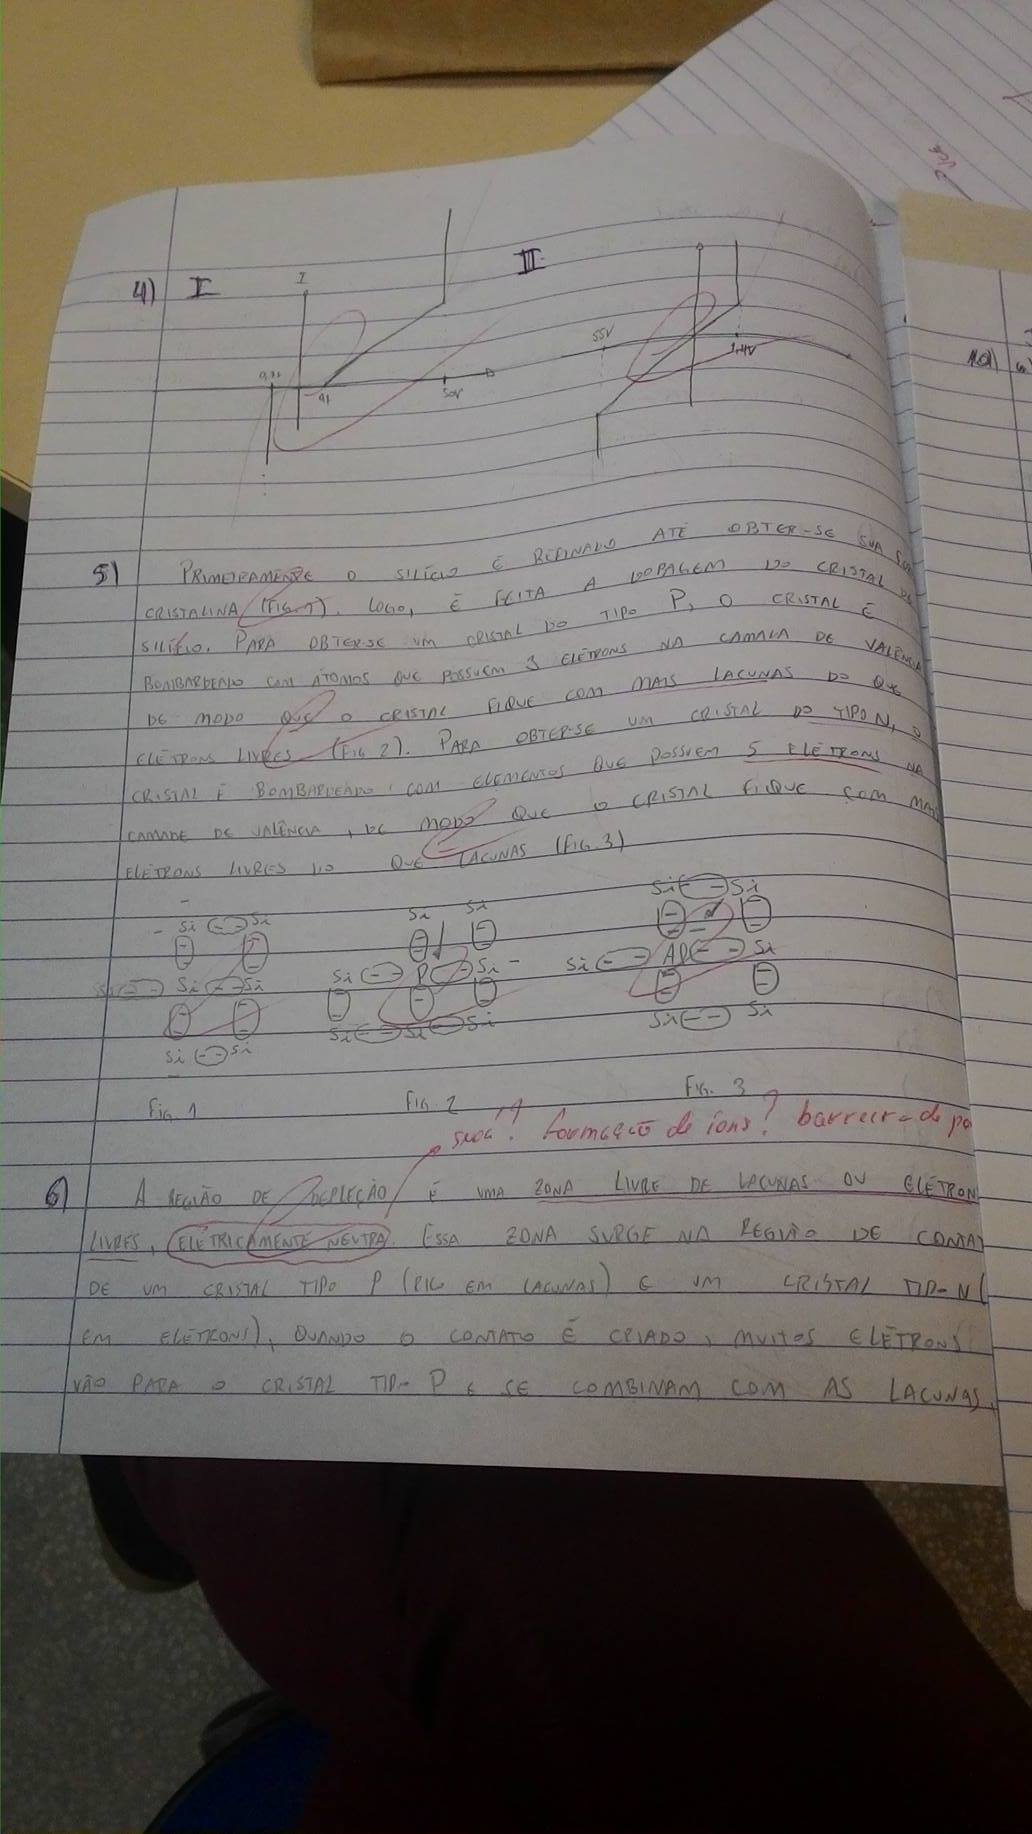 4) I
I
0,7V
50V
II
55V
1,4V
5) PRIMEIRAMENTE O SILÍCIO É REFINADO ATÉ OBTER-SE SUA
CRISTALINA (FIG. 1). LOGO, É FEITA A DOPAGEM DO CRISTAL DE
SILÍCIO. PARA OBTER-SE UM CRISTAL DO TIPO P, O CRISTAL É
BOMBARDEADO COM ÁTOMOS QUE POSSUEM 3 ELÉTRONS NA CAMADA DE VALÊNCIA
DE MODO QUE O CRISTAL FIQUE COM MAIS LACUNAS DO QUE
ELÉTRONS LIVRES (FIG 2). PARA OBTER-SE UM CRISTAL DO TIPO N, O
CRISTAL É BOMBARDEADO COM ELEMENTOS QUE POSSUEM 5 ELÉTRONS NA
CAMADE DE VALÊNCIA, DE MODO QUE O CRISTAL FIQUE COM MAIS
ELÉTRONS LIVRES DO QUE LACUNAS (FIG. 3)
Si Si
Si Si Si
Si Si
Fig 1
Si Si
Si P Si
Si Si Si
Fig. 2
Si Si
Si Al Si
Si Si
Fig. 3
formação de íons? barreira de po
6) A REGIÃO DE DEPLEÇÃO É UMA ZONA LIVRE DE LACUNAS OU ELÉTRON
LIVRES, ELETRICAMENTE NEUTRA. ESSA ZONA SURGE NA REGIÃO DE CONTA
DE UM CRISTAL TIPO P (RICO EM LACUNAS) E UM CRISTAL TIPO N (
EM ELÉTRONS), QUANDO O CONTATO É CRIADO, MUITOS ELÉTRONS
VÃO PARA O CRISTAL TIPO P E SE COMBINAM COM AS LACUNAS,
10)